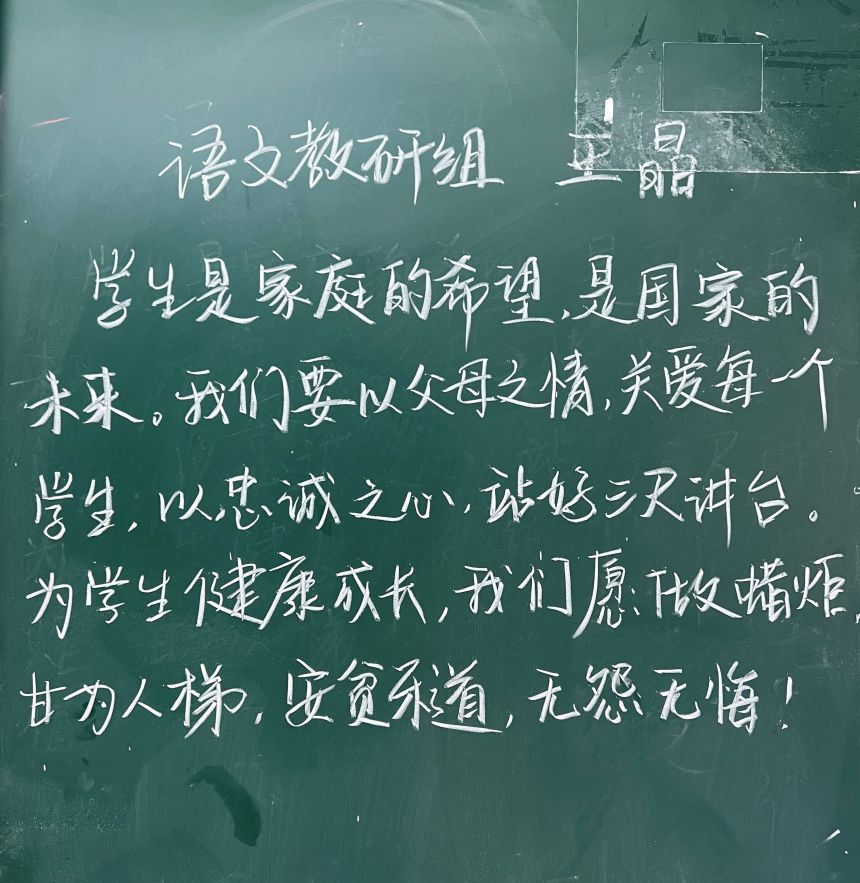 语文教研组 王晶
学生是家庭的希望,是国家的
未来。我们要以父母之情,关爱每一个
学生,以忠诚之心,站好三尺讲台。
为学生健康成长,我们愿做蜡炬,
甘为人梯,安贫乐道,无怨无悔!